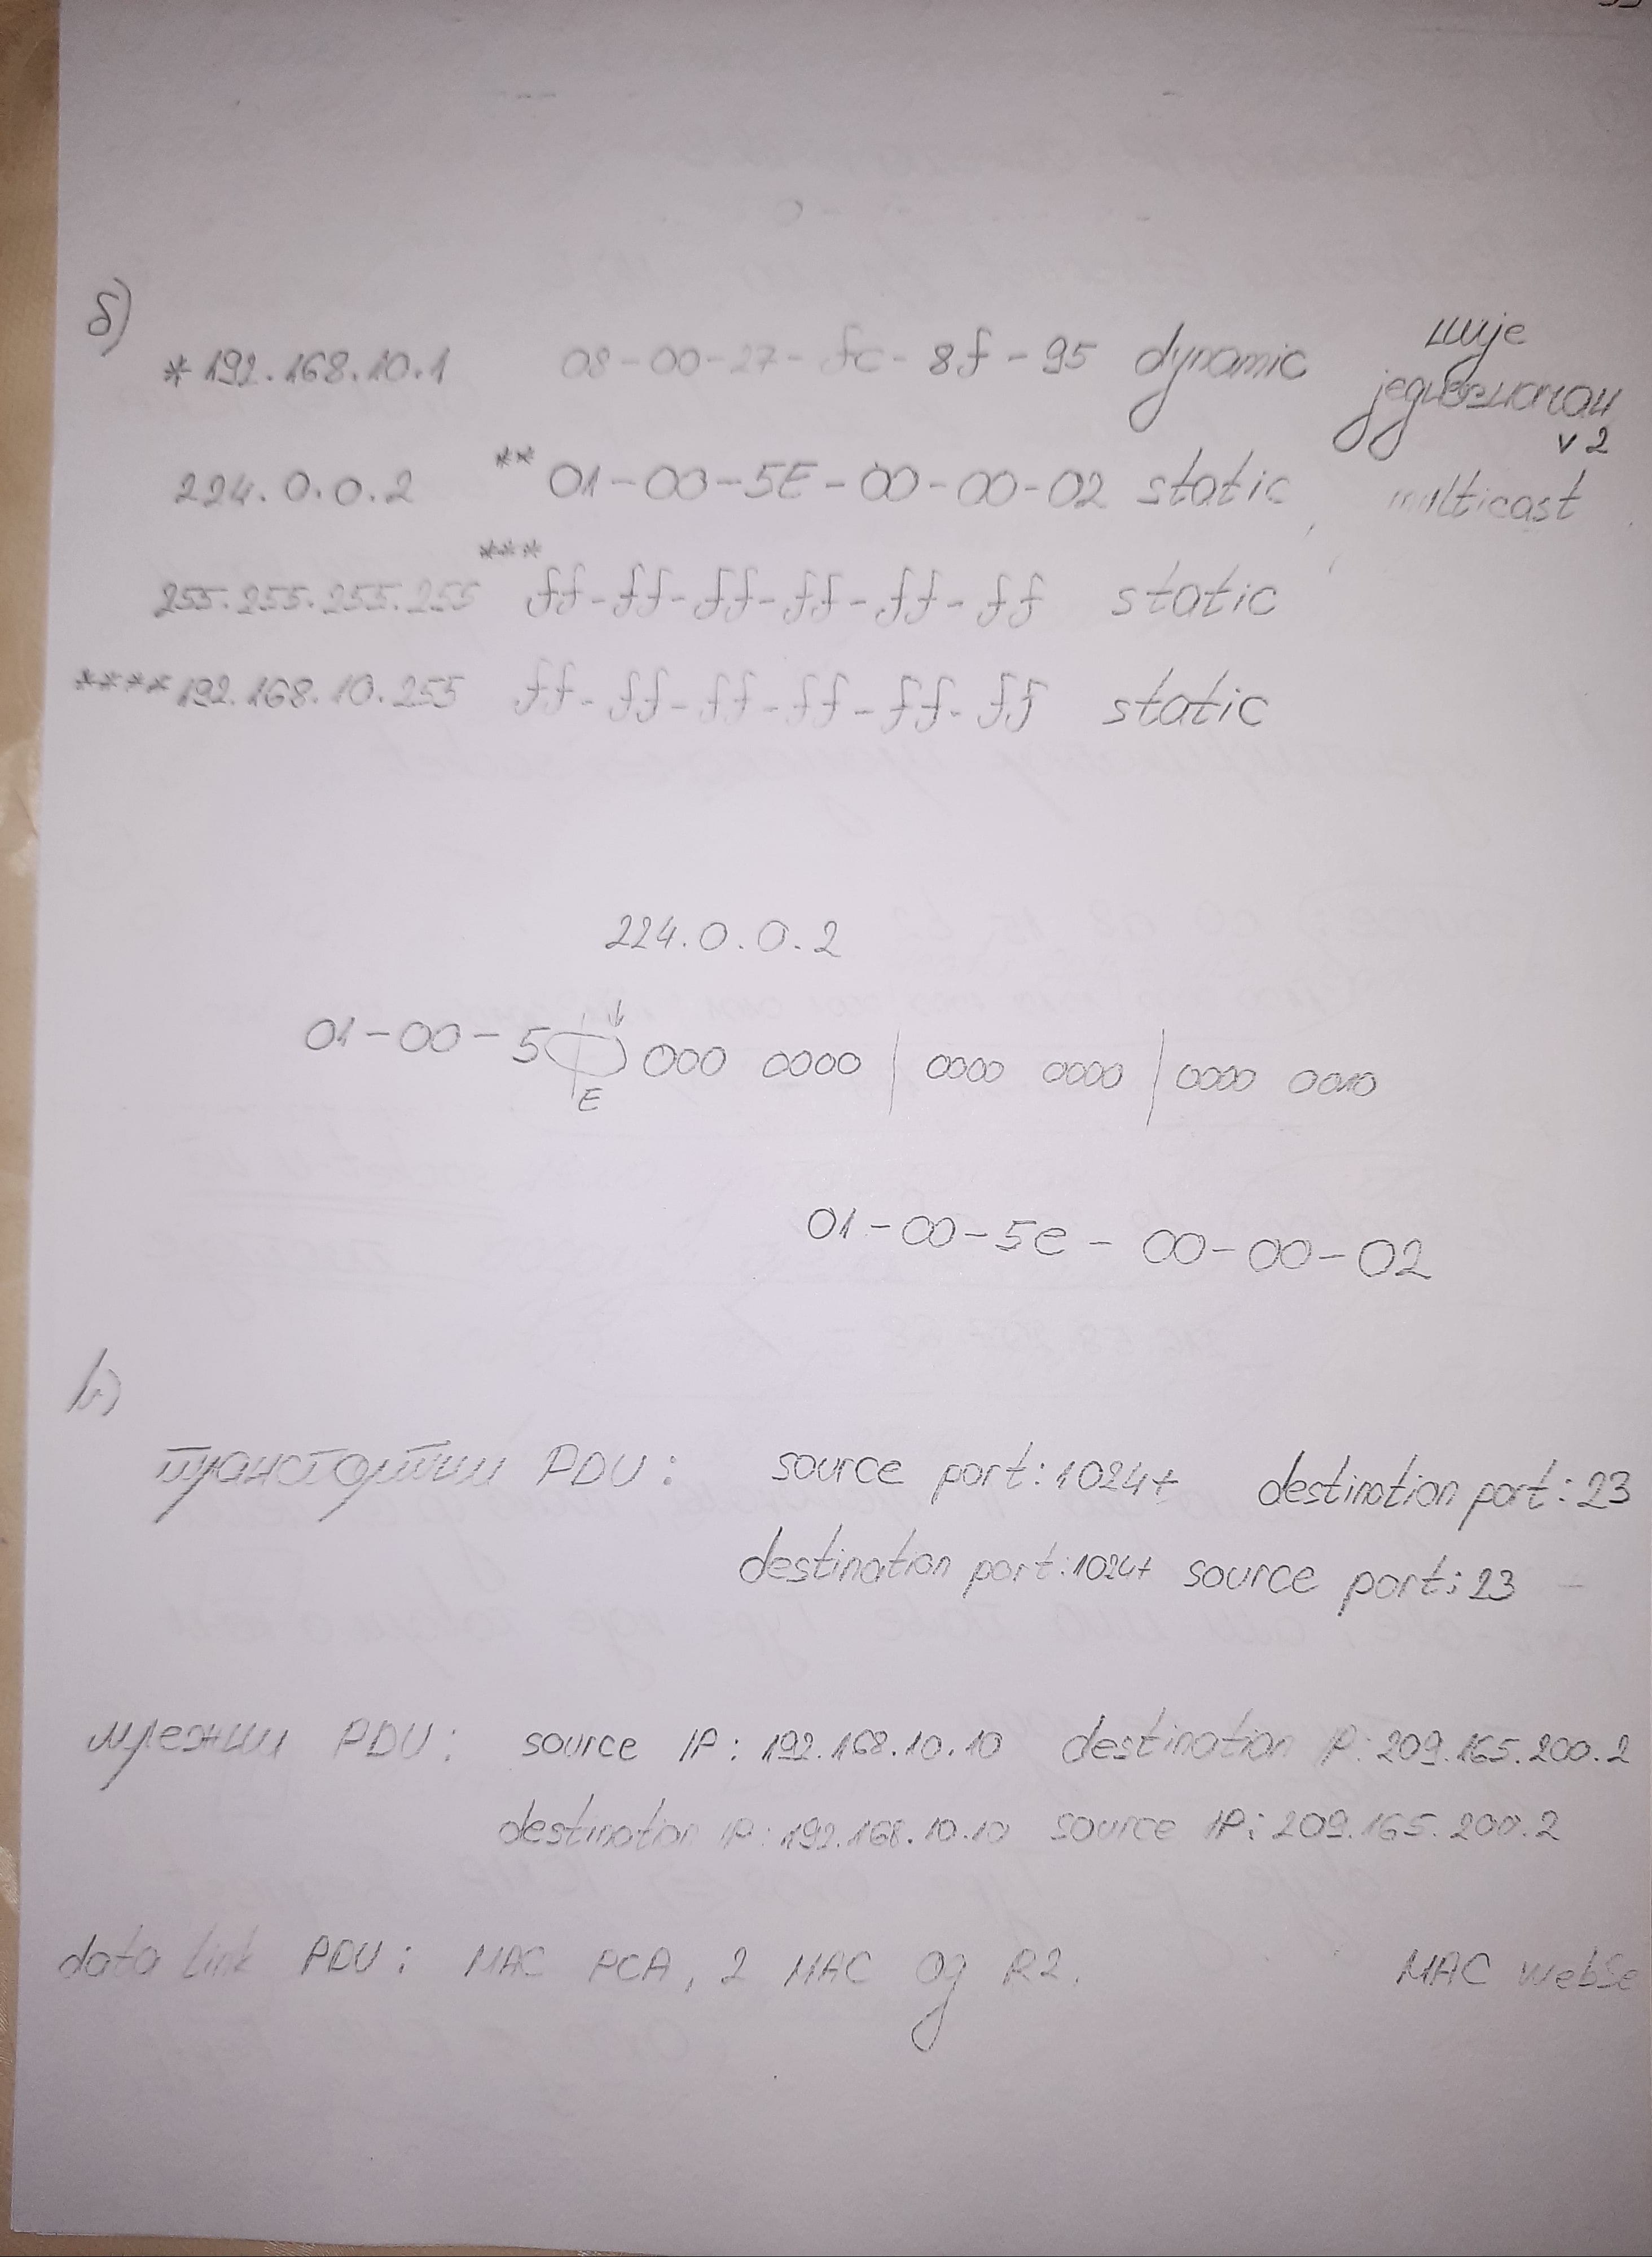 б)
није
* 192.168.10.1 08-00-27-fc-8f-95 dynamic једнозначан
v2
224.0.0.2 ** 01-00-5E-00-00-02 static multicast
255.255.255.255 *** ff-ff-ff-ff-ff-ff static
**** 192.168.10.255 ff-ff-ff-ff-ff-ff static
224.0.0.2
01-00-5 000 0000 | 0000 0000 | 0000 0010
E
01-00-5e-00-00-02
в)
транспортни PDU: source port: 1024+ destination port: 23
destination port: 1024+ source port: 23
мрежни PDU: source IP: 192.168.10.10 destination IP: 209.165.200.2
destination IP: 192.168.10.10 source IP: 209.165.200.2
data link PDU: MAC PCA, 2 MAC од R2. MAC WebSe